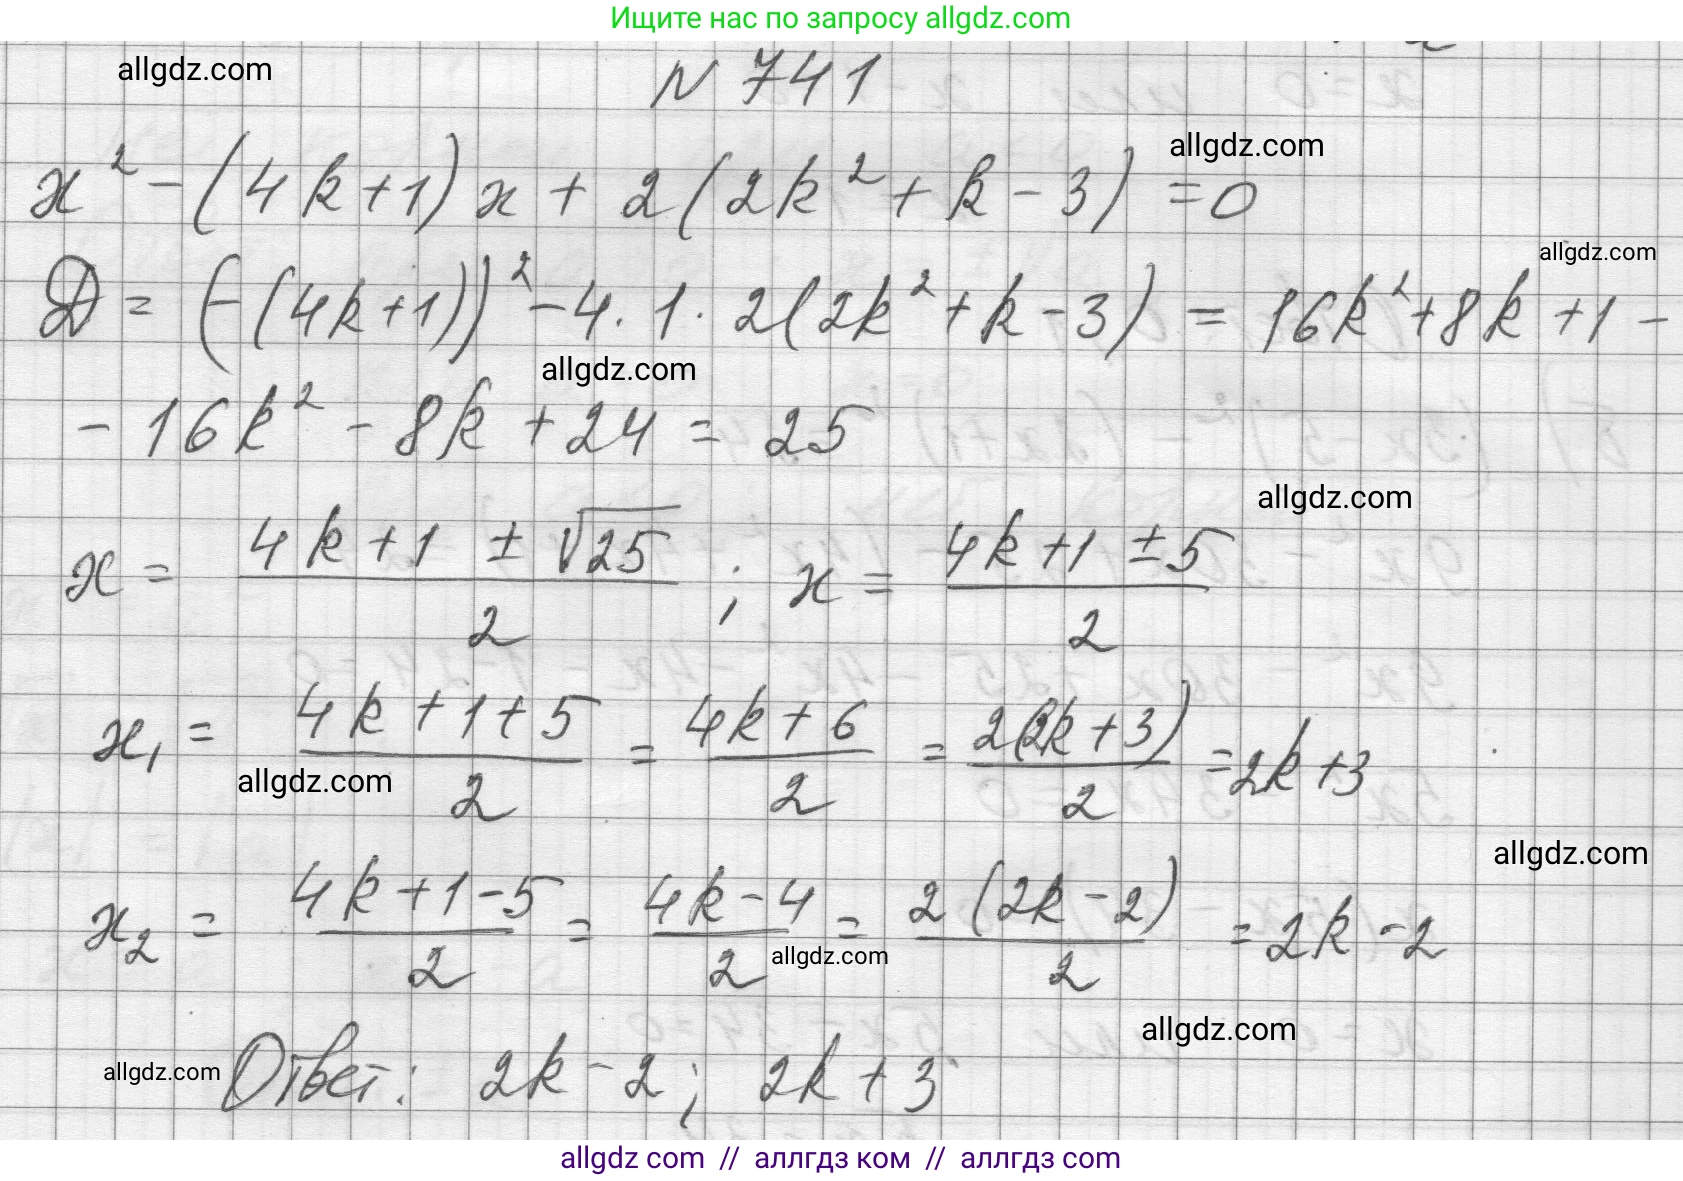 Ищите нас по запросу allgdz.com
allgdz.com
N 741
allgdz.com
x² - (4k+1)x + 2(2k² + k - 3) = 0
allgdz.com
D = (-(4k+1))² - 4 · 1 · 2(2k² + k - 3) = 16k² + 8k + 1 -
allgdz.com
- 16k² - 8k + 24 = 25
allgdz.com
x = (4k + 1 ± √25) / 2 ; x = (4k + 1 ± 5) / 2
x₁ = (4k + 1 + 5) / 2 = (4k + 6) / 2 = 2(2k + 3) / 2 = 2k + 3
allgdz.com
allgdz.com
x₂ = (4k + 1 - 5) / 2 = (4k - 4) / 2 = 2(2k - 2) / 2 = 2k - 2
allgdz.com
allgdz.com
allgdz.com
Ответ: 2k - 2; 2k + 3
allgdz com // аллгдз ком // аллгдз com